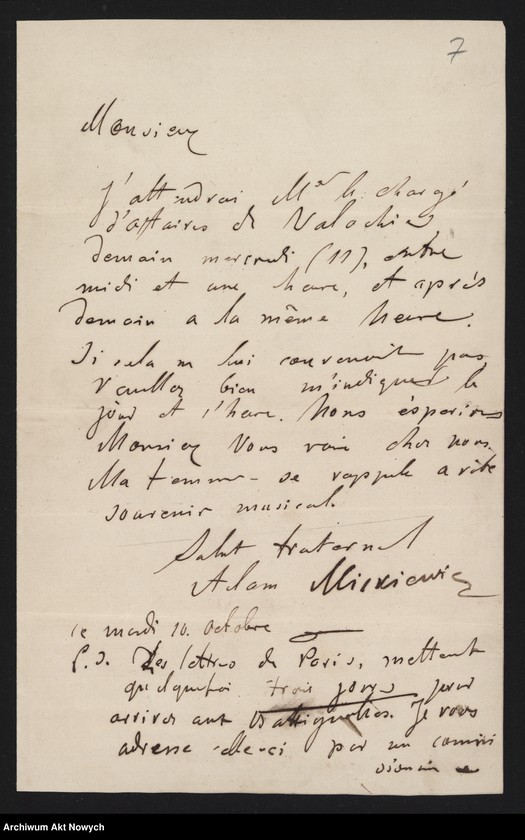 7
Monsieur
J'attendrai Mr le chargé
d'affaires de Valachie,
demain mercredi (11), entre
midi et une heure, et après
demain a la même heure.
Si cela ne lui convenait pas,
veuillez bien m'indiquer le
jour et l'heure. Nous éspérions
Monsieur vous voir chez nous.
Ma femme se rappele a votre
souvenir musical.
Salut fraternel
Adam Mickiewicz
ce mardi 10. Octobre
P. S. Les lettres de Paris, mettent
quelquefoi trois jours pour
arriver aux Battignolles. Je vous
adresse celle-ci par un commis
sionaire
Archiwum Akt Nowych